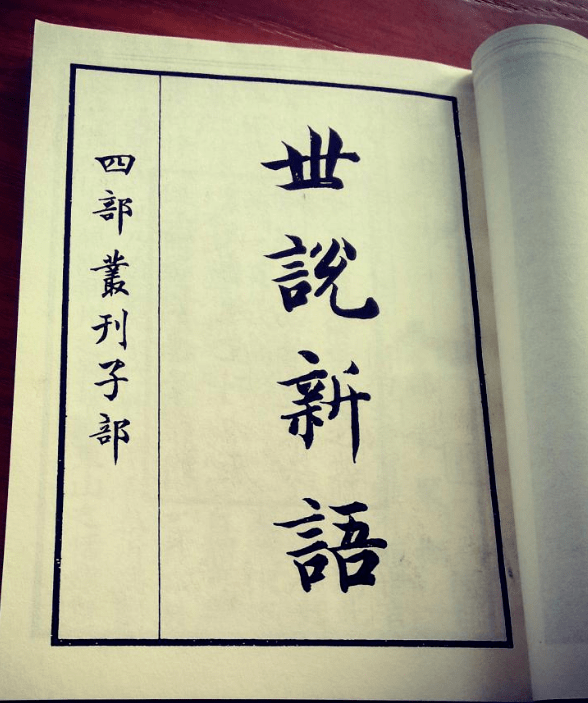 世說新語
四部叢刊子部